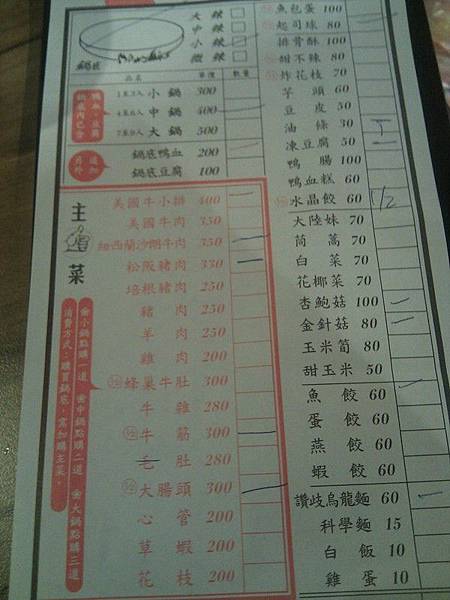 大辣
中辣
小辣
微辣
鍋底
品名 單價 數量
鴨血、豆腐
鍋底內已含
1至3人 小鍋 300
4至6人 中鍋 400
7至9人 大鍋 500
另外追加
鍋底鴨血 200
鍋底豆腐 100
主菜
美國牛小排 400
美國牛肉 350
紐西蘭沙朗牛肉 350
松阪豬肉 330
培根豬肉 250
豬肉 250
羊肉 250
雞肉 200
蜂巢牛肚 300
牛雜 280
牛筋 300
毛肚 280
大腸頭 300
心管 200
草蝦 200
花枝 200
消費方式：購買鍋底，需加購主菜。
小鍋點購一道 中鍋點購二道 大鍋點購三道
魚包蛋 100
起司球 80
排骨酥 100
甜不辣 80
炸花枝 70
芋頭 60
豆皮 50
油條 30
凍豆腐 50
鴨腸 100
鴨血糕 60
水晶餃 60 1/2
大陸妹 70
茼蒿 70
白菜 70
花椰菜 70
杏鮑菇 100
金針菇 80
玉米筍 80
甜玉米 50
魚餃 60
蛋餃 60
燕餃 60
蝦餃 60
讚岐烏龍麵 60
科學麵 15
白飯 10
雞蛋 10